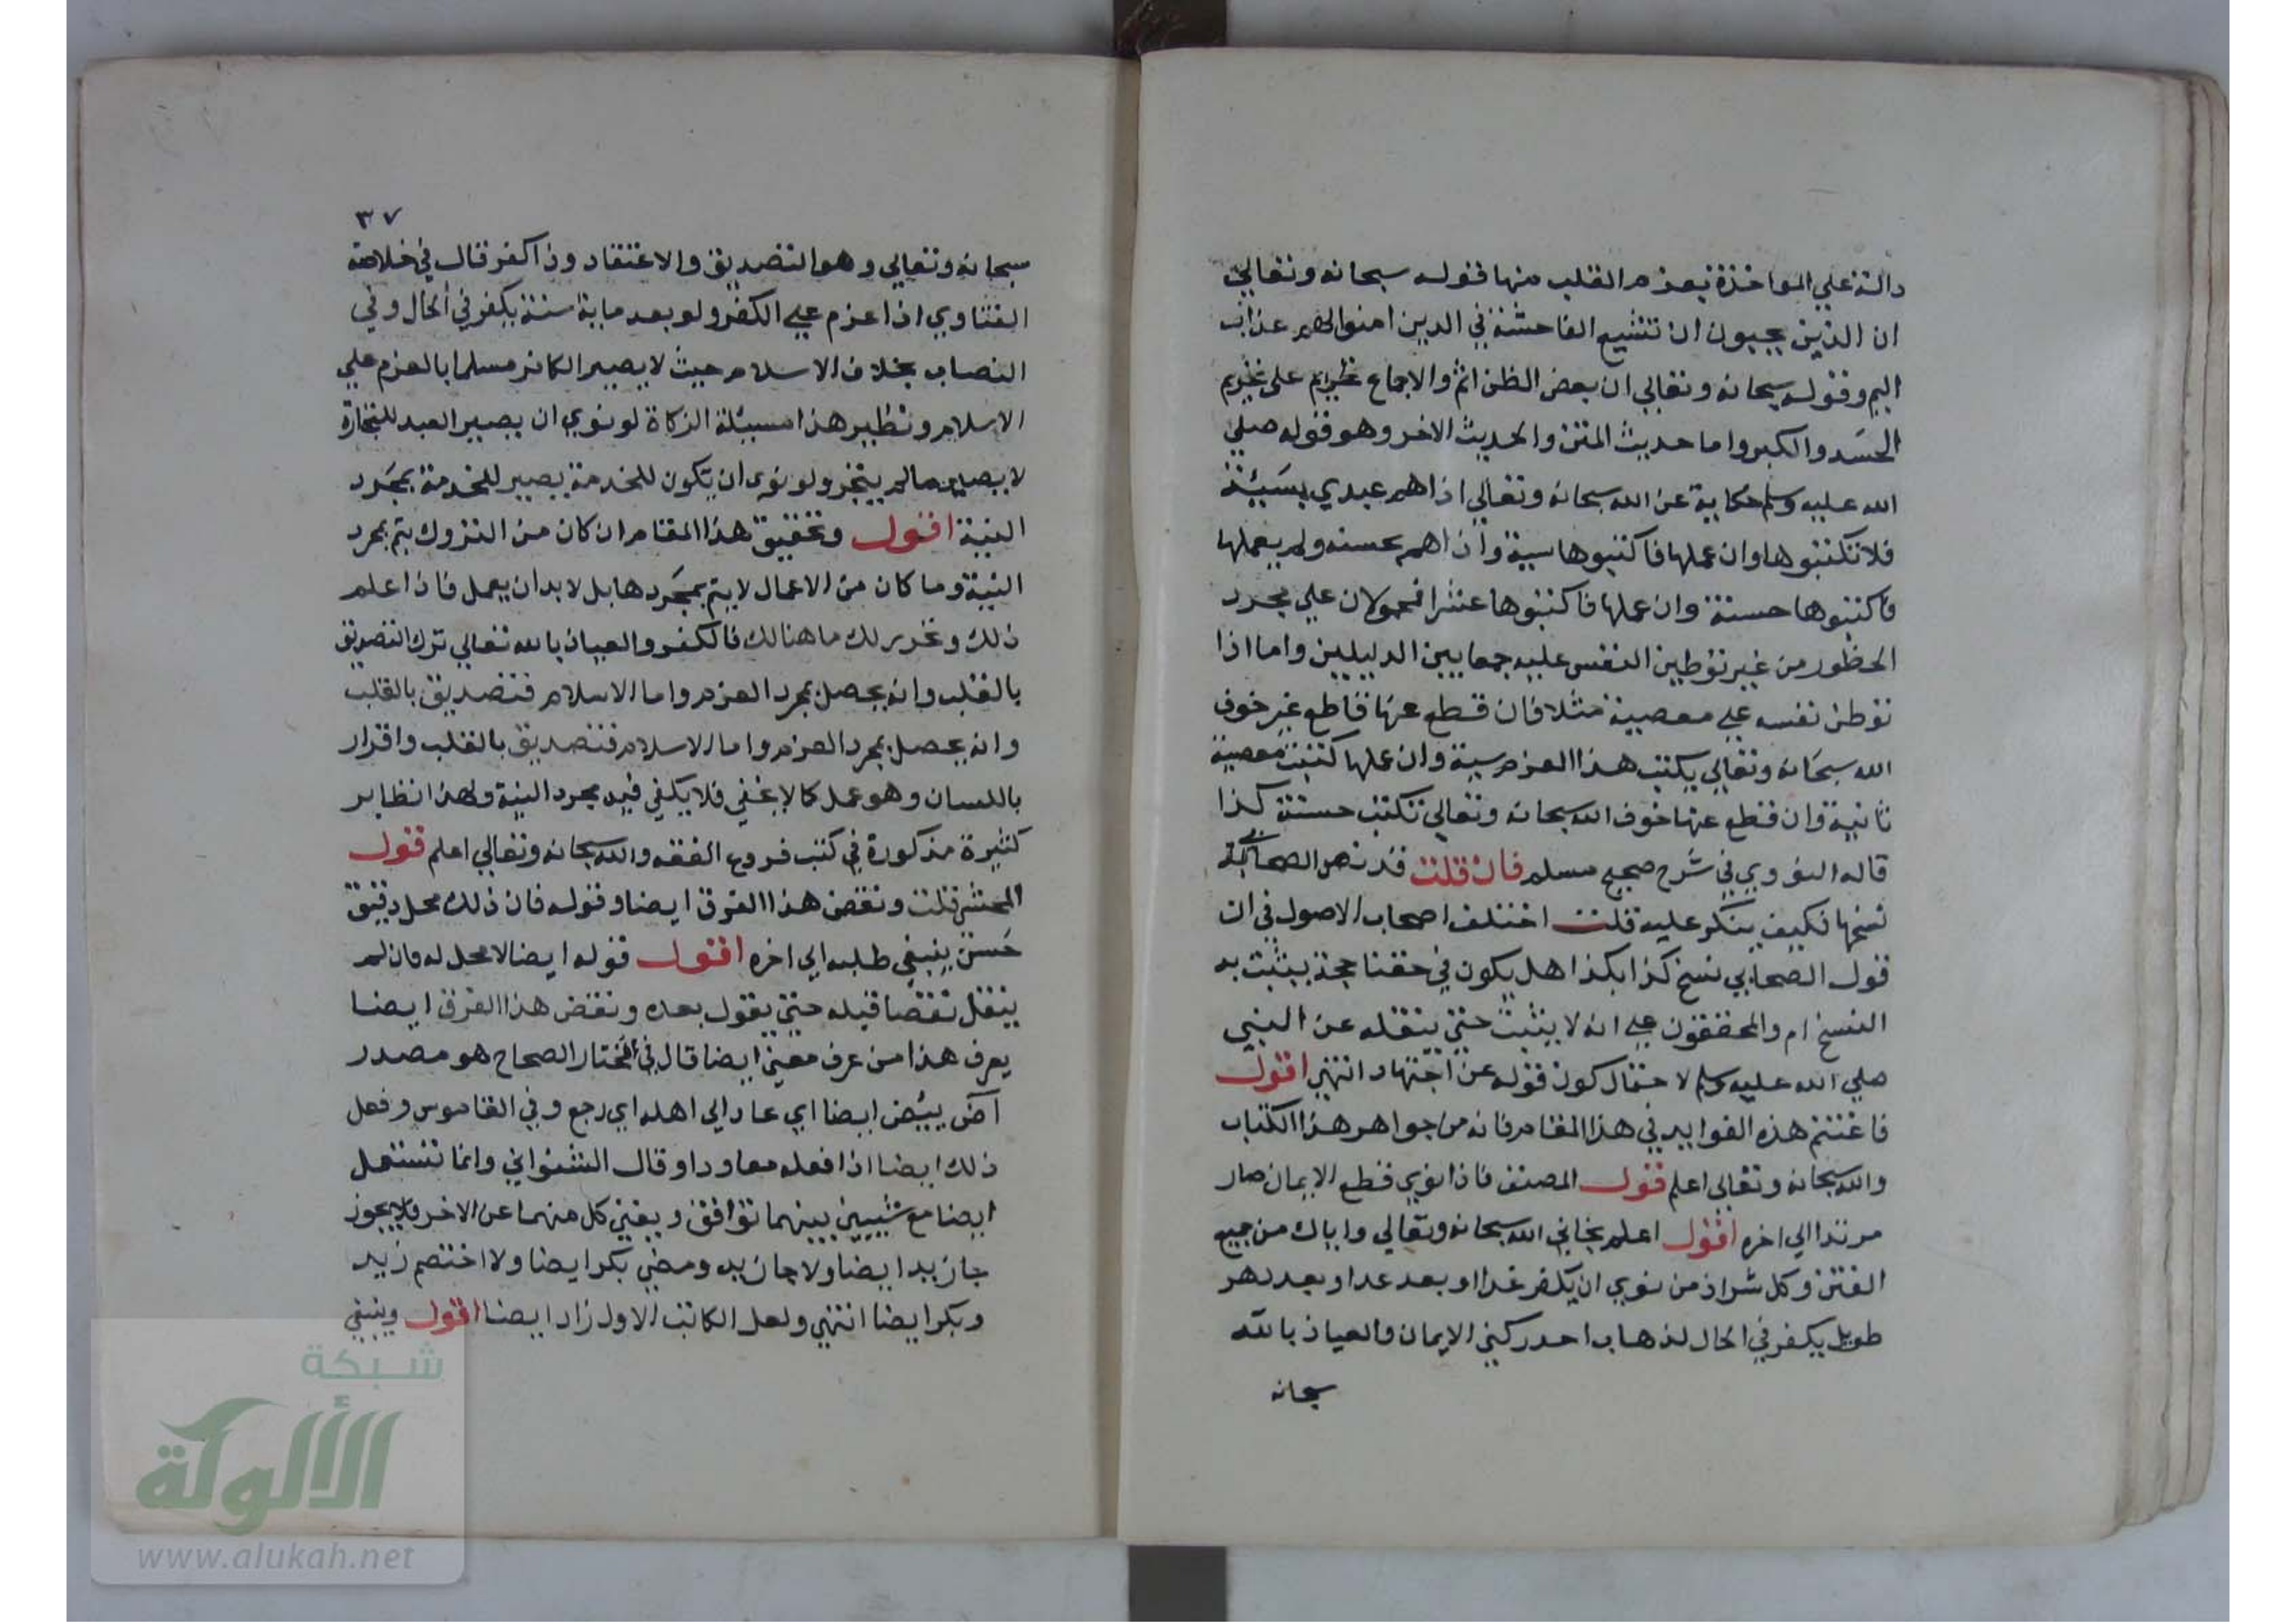 دالة علي المواخذة بعزم القلب منها قوله سبحانه وتعالي
ان الذين يحبون ان تشيع الفاحشة في الدين امنوا لهم عذاب
اليم وقوله سبحانه وتعالي ان بعض الظن اثم والاجماع علي تحريم
الحسد والكبر واما حديث المتن والحديث الاخر وهو قوله صلي
الله عليه وسلم حكاية عن الله سبحانه وتعالي اذا هم عبدي بسيئة
فلا تكتبوها وان عملها فاكتبوها سيية واذا هم بحسنه ولم يعملها
فاكتبوها حسنة وان عملها فاكتبوها عشرا فمحمولان علي مجرد
الخطور من غير توطين النفس عليه جمعا بين الدليلين واما اذا
توطن نفسه علي معصية مثلا فان قطع عنها قاطع غير خوف
الله سبحانه وتعالي يكتب هذا العزم سية وان عملها كتبت معصية
ثانية وان قطع عنها خوف الله سبحانه وتعالي تكتب حسنة كذا
قاله النووي في شرح صحيح مسلم فان قلت قد نص الصحابي
نسخها فكيف ينكر عليه قلت اختلف اصحاب الاصول في ان
قول الصحابي نسخ كذا بكذا هل يكون في حقنا حجة يثبت به
النسخ ام والمحققون علي انه لا يثبت حتي ينقله عن النبي
صلي الله عليه وسلم لاحتمال كون قوله عن اجتهاد انتهي اقول
فاغتنم هذه الفوايد في هذا المقام فانه من جواهر هذا الكتاب
والله سبحانه وتعالي اعلم قول المصنف فاذا نوي قطع الايمان صار
مرتدا الي اخره اقول اعلم نجاني الله سبحانه وتعالي واياك من جميع
الفتن وكل شر اذ من نوي ان يكفر غدا او بعد غدا وبعد دهر
طويل يكفر في الحال لذهاب احد ركني الايمان والعياذ بالله
سبحانه
٣٧
سبحانه وتعالي وهو التصديق والاعتقاد وذا كفر قال في خلاصة
الفتاوي اذا عزم علي الكفر ولو بعد ماية سنة يكفر في الحال وفي
النصاب بخلاف الاسلام حيث لا يصير الكافر مسلما بالعزم علي
الاسلام ونظير هذا مسيلة الزكاة لو نوي ان يصير العبد للتجارة
لا يصير مالم يتجر ولو نوي ان يكون للخدمة يصير للخدمة بمجرد
النية اقول وتحقيق هذا المقام ان كان من التروك يتم بمجرد
النية وما كان من الاعمال لا يتم بمجردها بل لا بد ان يعمل فاذا علم
ذلك وتحرر لك ما هنالك فالكفر والعياذ بالله تعالي ترك التصديق
بالقلب وانه يحصل بمجرد العزم واما الاسلام فتصديق بالقلب
وانه يحصل بمجرد العزم واما الاسلام فتصديق بالقلب واقرار
باللسان وهو عمل كما لا يخفي فلا يكفي فيه مجرد النية ولهذا نظاير
كثيرة مذكورة في كتب فروع الفقه والله سبحانه وتعالي اعلم قول
المحشي قلت ونقض هذا الفرق ايضا وقوله فان ذلك محل دقيق
حسن ينبغي طلبه الي اخره اقول قوله ايضا لا محل له فان لم
ينقل نقضا قبله حتي يقول بعده ونقض هذا الفرق ايضا
يعرف هذا من عرف معني ايضا قال في المختار الصحاح هو مصدر
آض ييض ايضا اي عاد الي اهله اي رجع وفي القاموس وفعل
ذلك ايضا اذا فعله معاودا وقال الشنواني وانما تستعمل
ايضا مع شييين بينهما توافق ويغني كل منهما عن الاخر فلا يجوز
جا زيد ايضا ولا جا زيد ومضي بكر ايضا ولا اختصم زيد
وبكر ايضا انتهي ولعل الكاتب الاول زاد ايضا اقول وينبغي
شبكة
الألوكة
www.alukah.net